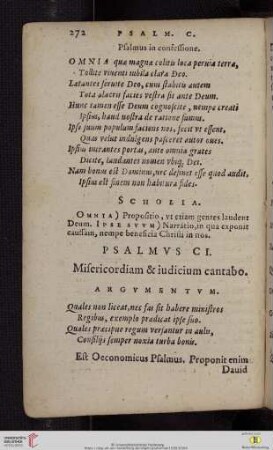 272 PSALM. C.
Psalmus in confessione.
OMNIA qua magna colitis loca pervia terra,
Tollite viventi iubila clara Deo.
Laetantes servite Deo, cum
Tota alacris facies vestra sit ante Deum.
Hunc tamen esse Deum cognoscite, nempe creati
Ipsius, haud nostra de ratione sumus.
Ipse suum populum facturus nos, fecit ut essent,
Quas velut indigens pasceret autor oues.
Ipsius intrantes portas, ante omnia grates
Dicite, laudantes nomen vbiq; Dei.
Nam bonus est Dominus, nec desinet esse quod audit.
Ipsius est finem non habitura fides.
SCHOLIA.
OMNIA) Propositio, vt etiam gentes laudent
Deum. IPSE SVVM) Narratio, in qua exponit
caussam, nempe beneficia Christi in nos.
PSALMVS CI.
Misericordiam & iudicium cantabo.
ARGVMENTVM.
Quales non liceat, nec fas sit habere ministros
Regibus, exemplo praedicat ipse suo.
Quales praecipue regum versantur in aulis,
Consiliis semper noxia turba bonis.
Est Oeconomicus Psalmus. Proponit enim
Dauid